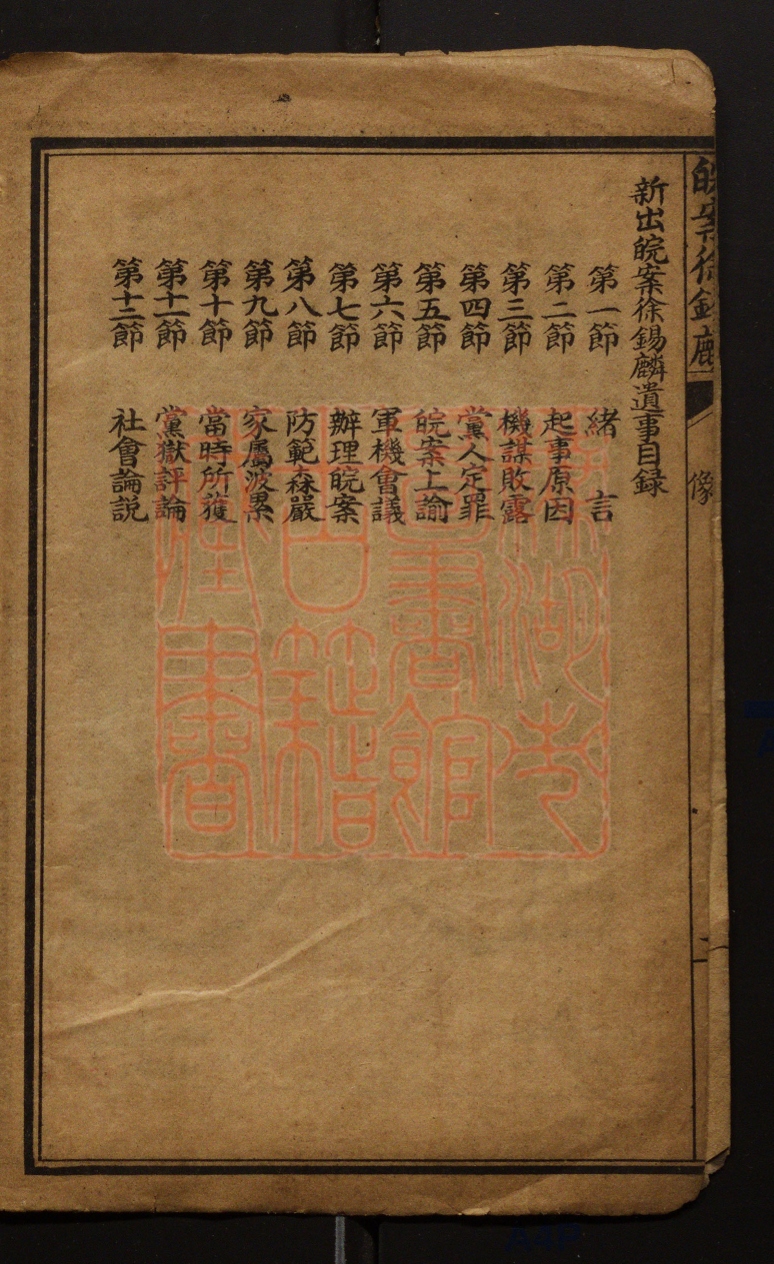 皖案徐錫麟
像
新出皖案徐錫麟遺事目録
第一節 緒言
第二節 起事原因
第三節 機謀敗露
第四節 黨人定罪
第五節 皖案上諭
第六節 軍機會議
第七節 辦理皖案
第八節 防範森嚴
第九節 家屬波累
第十節 當時所獲
第十一節 黨獄評論
第十二節 社會論説
蕪湖市
圖書館
古籍
藏書